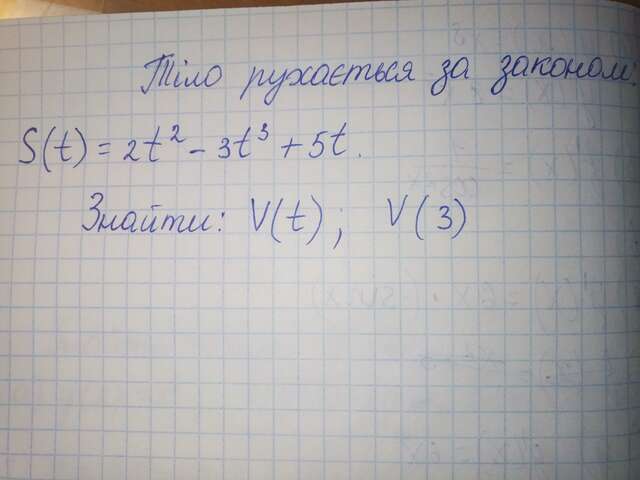 Тіло рухається за законом:
S(t) = 2t² - 3t³ + 5t.
Знайти: V(t); V(3)